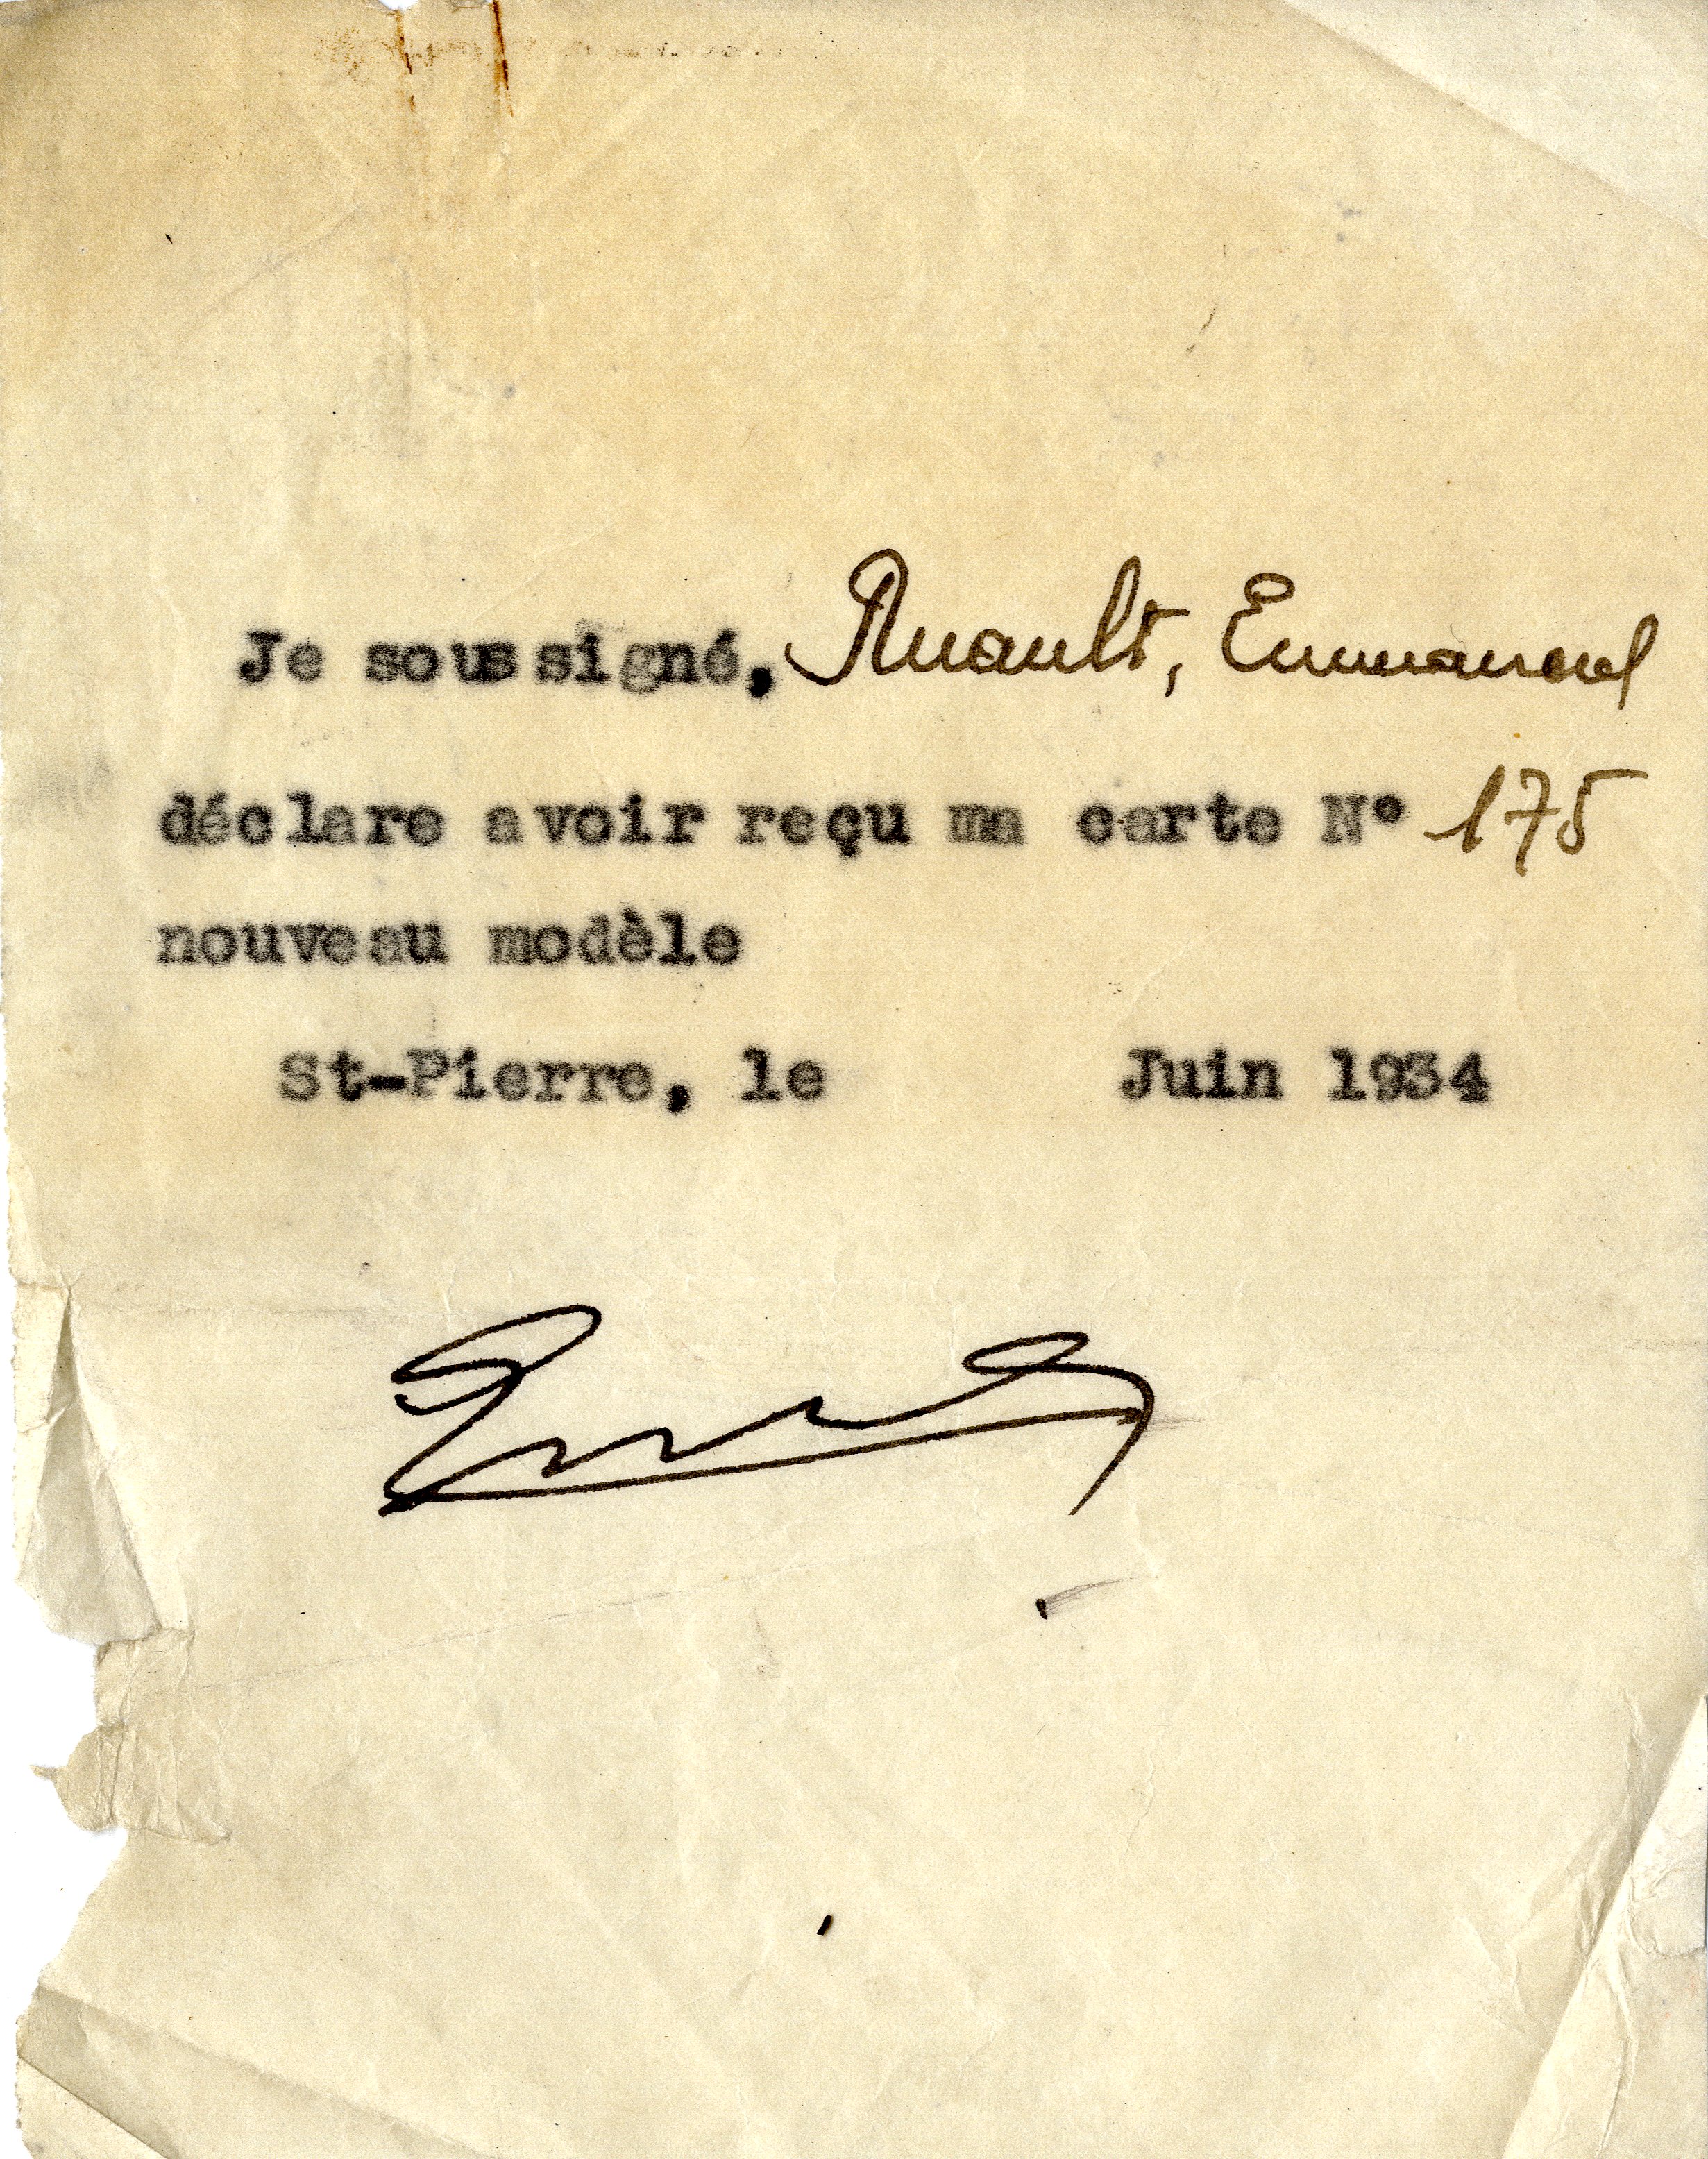 Je soussigné, Ruault, Emmanuel
déclare avoir reçu ma carte N° 175
nouveau modèle
St-Pierre, le Juin 1934